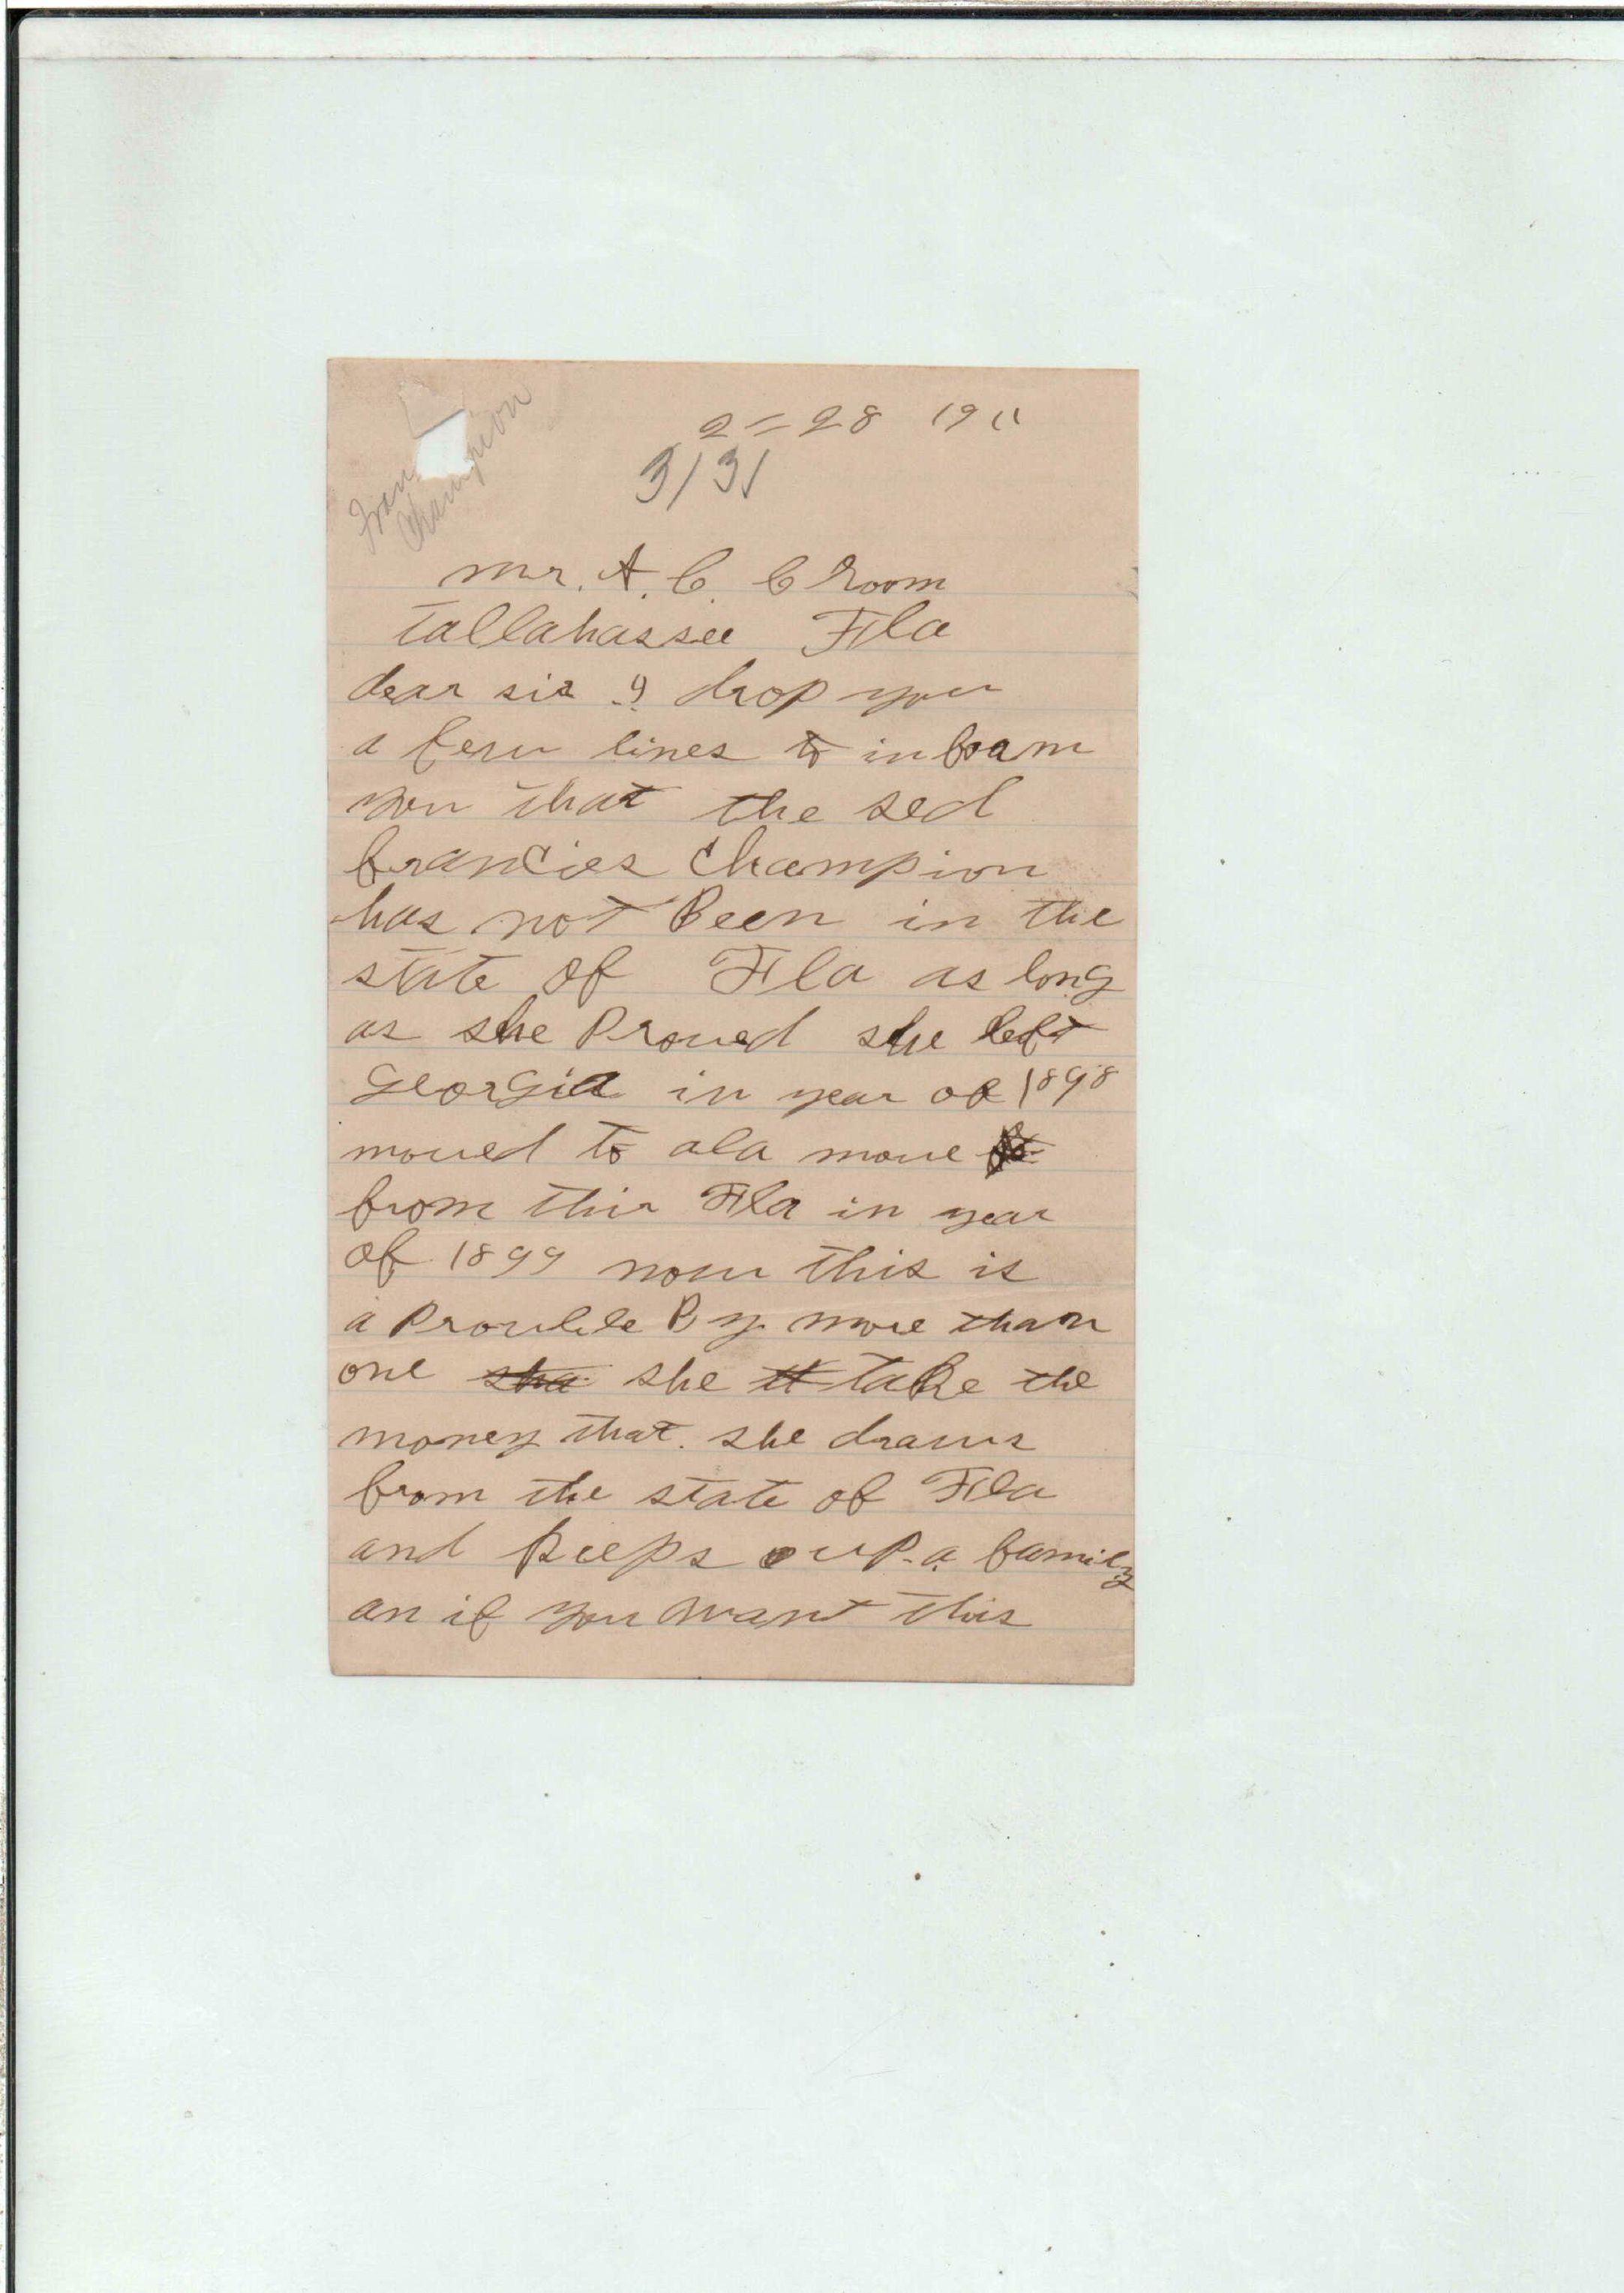 Fran
Champion
2=28 1911
3131
mr. A. C. Croom
Tallahassee Fla
dear sir I drop you
a few lines to inform
you that the sed
francies Champion
has not Been in the
state of Fla as long
as she Proved she left
Georgia in year of 1898
moved to ala move
from thir Fla in year
of 1899 now this is
a Prouble By more than
one sha she tt take the
money that. she draws
from the state of Fla
and keeps up a family
an if you want this